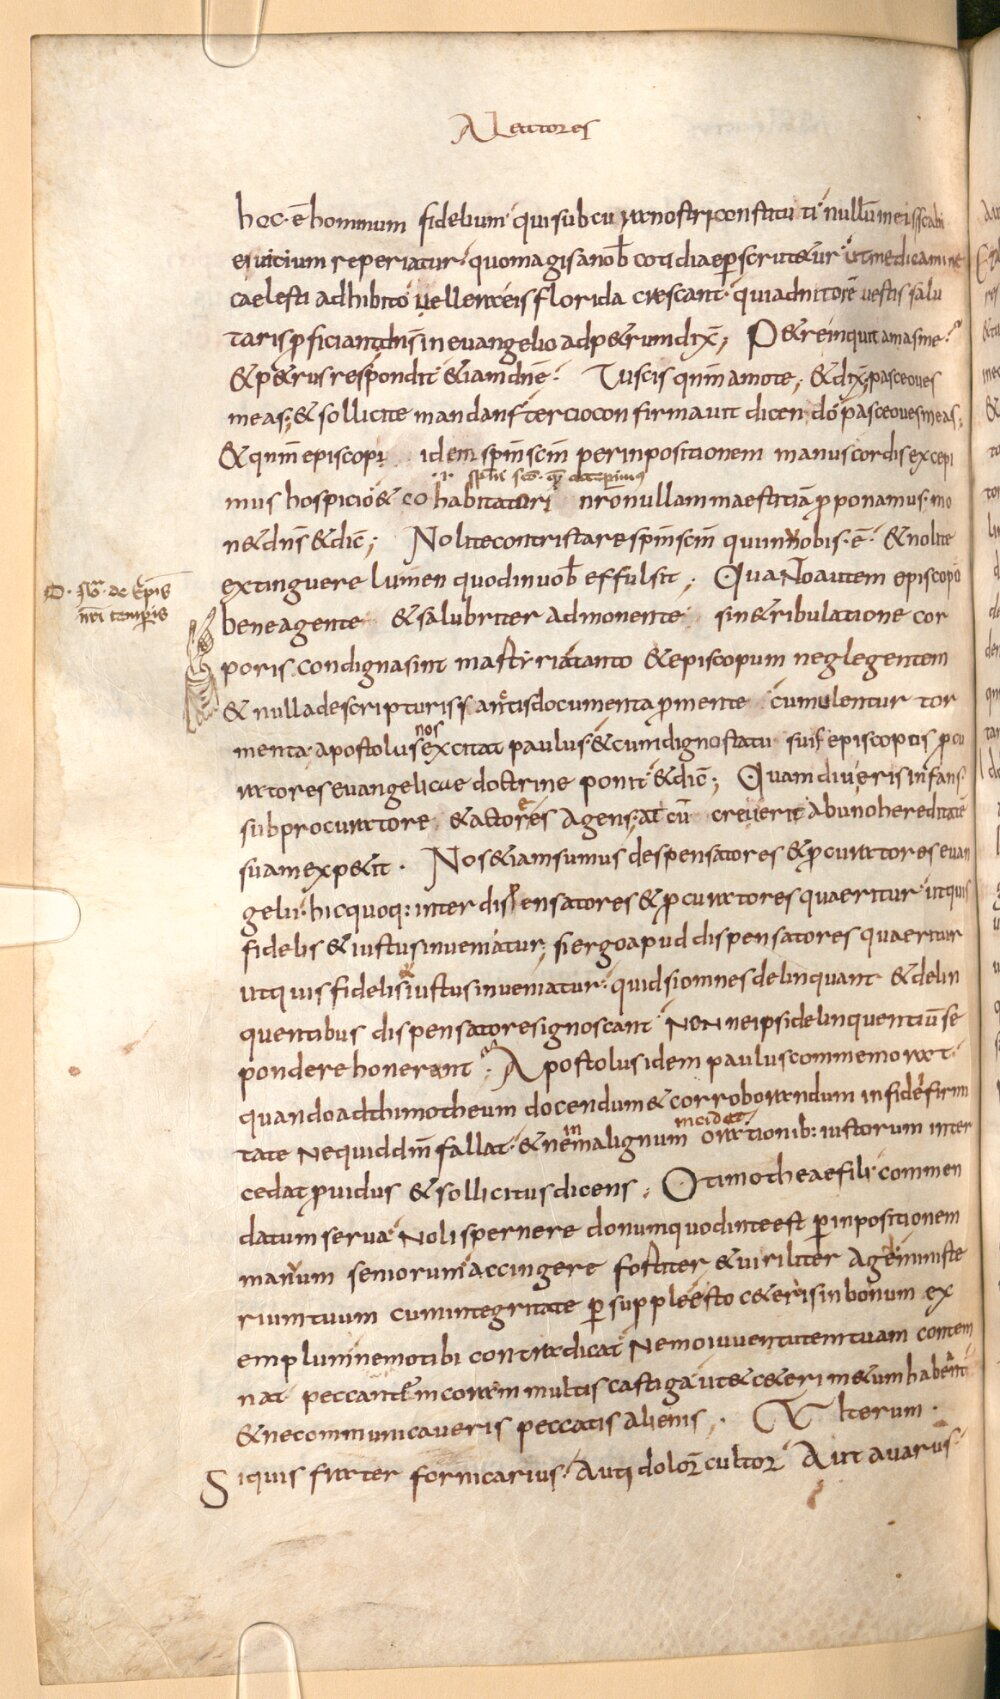 A Lectores
hoc · ē hominum fidelium · qui sub cura nostri constituti · nullū meis scabi
ei uicium reperiatur · quo magis a nob̄ cotidiae ꝑscrutetur · ut medicamine
caelesti adhibito uellera eis florida crescant · quia dn̄i
taris ꝓficiant · dn̄s in euangelio ad petrum dix̄ ; Petre inquit amas me ·
& petrus respondit & iam dn̄e · Tu scis qnm̄ amo te ; & dix̄ ; pasce oues
meas ; & sollicite mandans tercio confirmauit dicendo pasce oues meas ;
& qnm̄ episcopi idem spm̄ scm̄ per inpositionem manus cordis excepi
mus hospicio & cohabitatori nr̄o nullam maestitiā ꝓponamus · mo
net dn̄s & dic̄ ; Nolite contristare spm̄ scm̄ qui in uobis · ē · & nolite
D · de ep̄is
nr̄i temꝑis
extinguere lumen quod in uob̄ effulsit ; Qua ño autem episcopo
bene agente & salubriter admonente · sine tribulatione cor
poris condigna sint martyria tanto & episcopum neglegentem
& nulla de scripturis sanctis documenta ꝓmente cumulentur tor
menta · apostolus nos excitat paulus · & cum digno statu suis episcopis ꝓcu
ratores euangelicae doctrine ponit & dic̄ ; Quamdiu eris infans ·
sub procuratore & actores agens · at cū creuerit ab uno hereditatē
suam expetit · Nos etiam sumus despensatores & ꝓcuratores euan
gelii · hic quoq: inter dispensatores & ꝓcuratores quaeritur · ut quis
fidelis & iustus inueniatur ; si ergo apud dispensatores quaeritur
ut quis fidelis iustus inueniatur · quid si omnes delinquant & delin
quentibus dispensatores ignoscant · NoN ne ipsi delinquentiū se
pondere honerant · Apostolus idem paulus commemorat ·
quando ad thimotheum docendum & corroborandum in fidei firmi
tate Ne quid dm̄ fallat · & ne in malignum incidat orationib: iustorum inter
cedat ꝓuidus & sollicitus dicens ; O timotheae fili · commen
datum serua · Noli spernere donum quod in te est ꝑ inpositionem
manuum seniorum accingere fortiter & uiriliter age ministe
rium tuum cum integritate ꝑ suppleesto ceteris in bonum ex
emplum · nemo tibi contradicat Nemo iuuentutem tuam contem
nat · peccantem coram multis castiga ut & ceteri metum habeant
& ne communicaueris peccatis alienis ; · Ulterum ·
Siquis frater fornicarius · Aut idolor̄ cultor Aut auarus ·